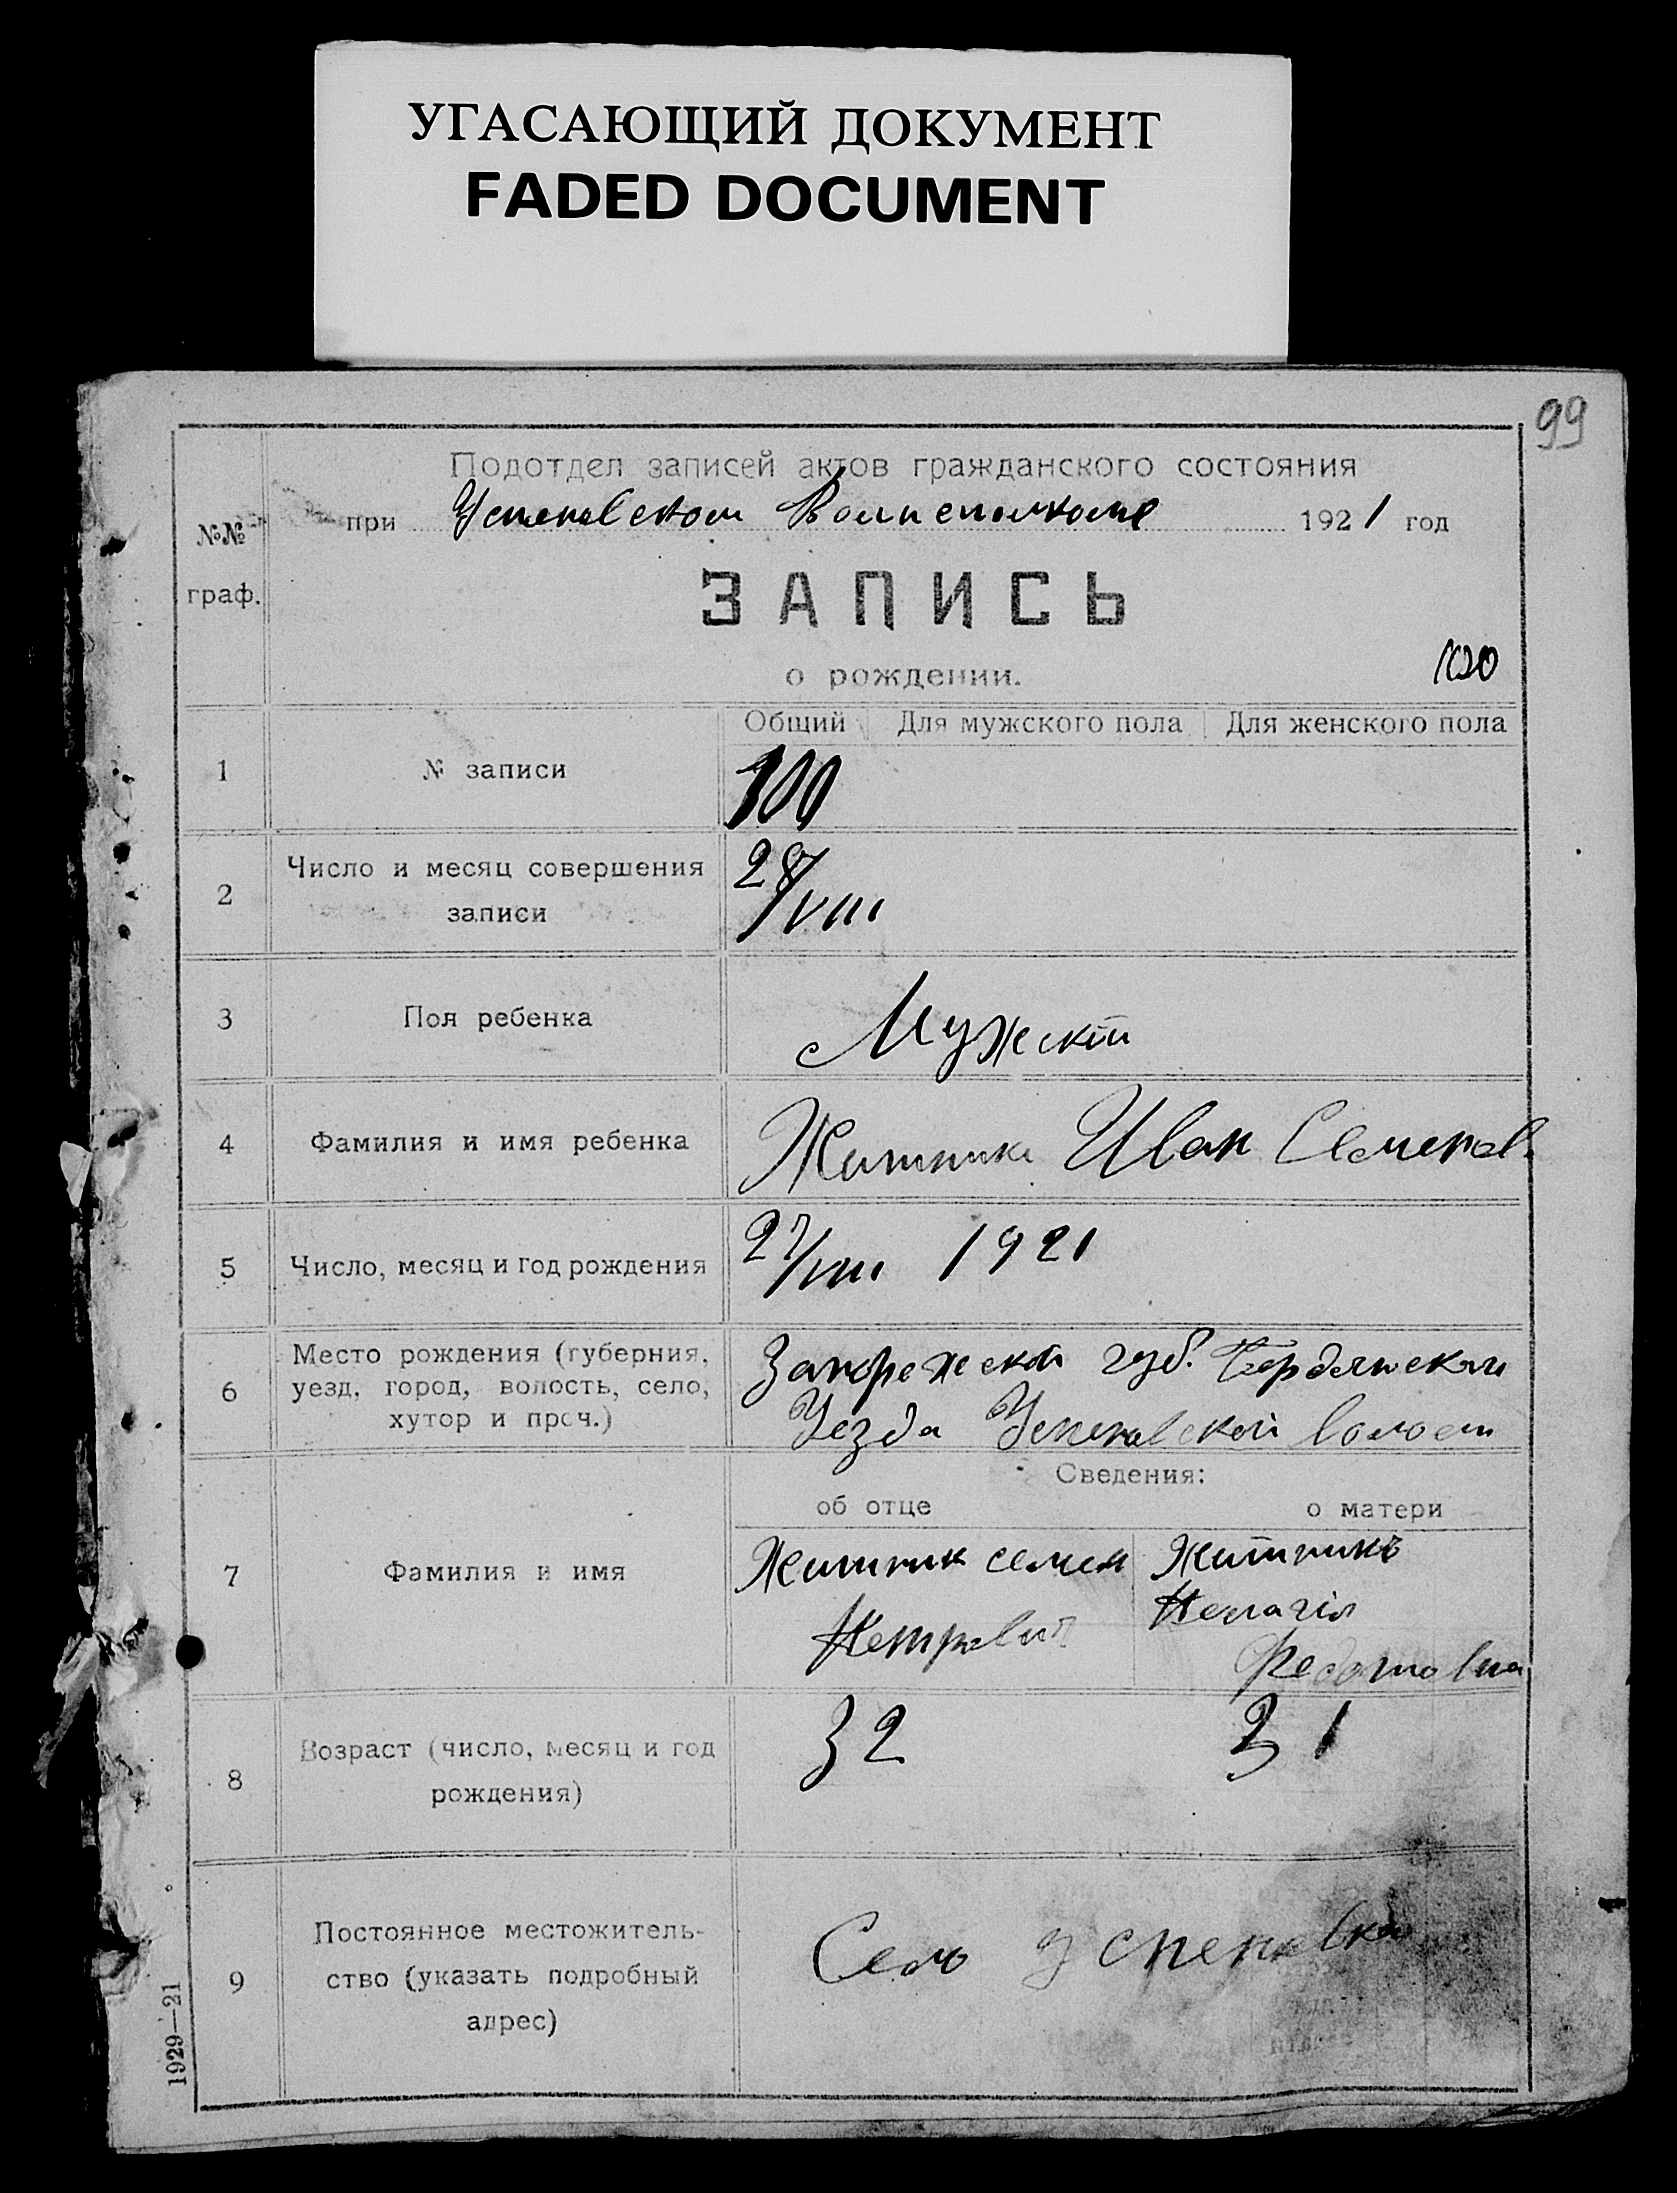 УГАСАЮЩИЙ ДОКУМЕНТ
FADED DOCUMENT
99
Подотдел записей актов гражданского состояния
при Успеновском Волисполкоме 1921 год
№№
граф.
ЗАПИСЬ
о рождении.
100
Общий Для мужского пола Для женского пола
1 № записи 100
2 Число и месяц совершения
записи
28/VIII
3 Пол ребенка Мужской
4 Фамилия и имя ребенка Житник Иван Семенов.
5 Число, месяц и год рождения 27/VIII 1921
6 Место рождения (губерния,
уезд, город, волость, село,
хутор и проч.)
Запорежской губ. Бердянской
Уезда Успеновской волости
Сведения:
об отце о матери
7 Фамилия и имя
Житник семен
Петрович
Житникъ
Пелагія
Федотовна
8 Возраст (число, месяц и год
рождения)
32 31
9 Постоянное местожитель-
ство (указать подробный
адрес)
Село Успеновка
1929—21